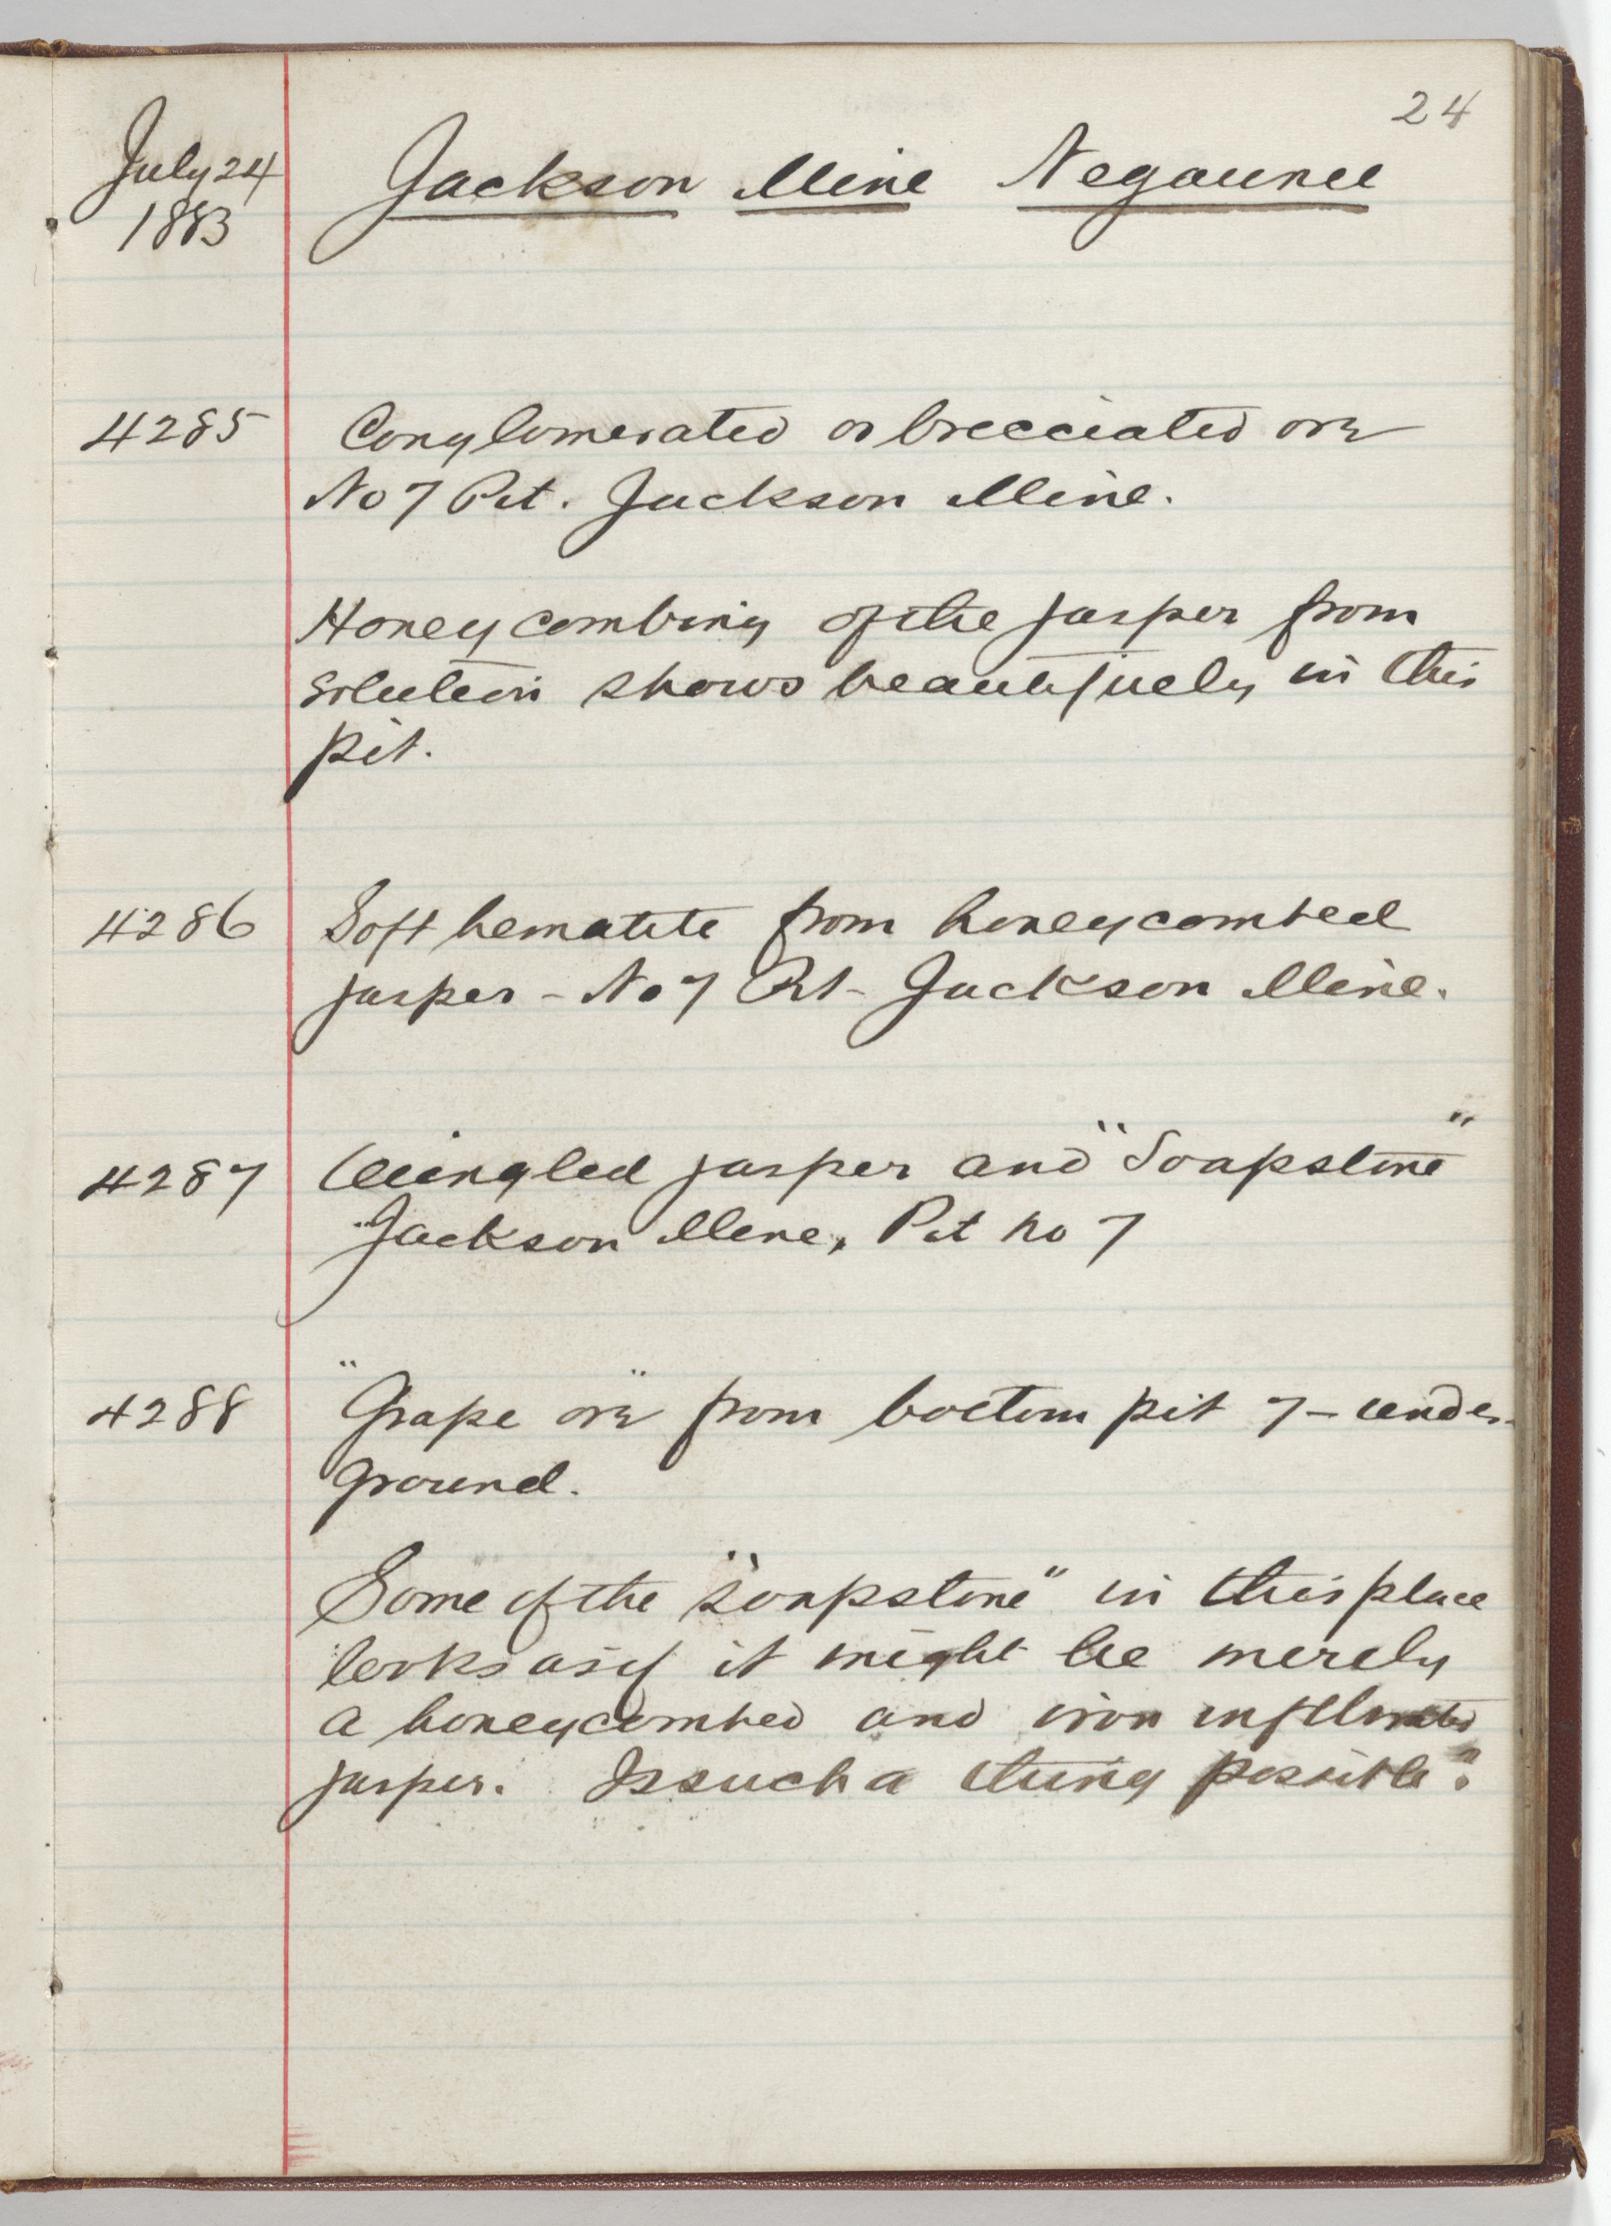 24
July 24
1883
Jackson Mine Negaunee
4285 Conglomerated or brecciated ore
No 7 Pit. Jackson Mine.
Honeycombing of the jasper from
solution shows beautifully in this
pit.
4286 Soft hematite from honeycombed
jasper - No 7 Pit - Jackson Mine.
4287 Mingled jasper and "Soapstone"
Jackson Mine, Pit No 7
4288 "Grape ore" from bottom pit 7 - under-
ground.
Some of the "soapstone" in this place
looks as if it might be merely
a honeycombed and iron infiltrated
jasper. Is such a thing possible?